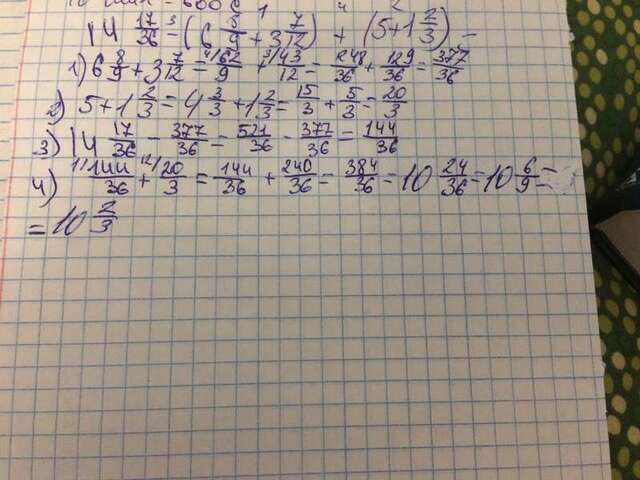 14 17/36 - (6 8/9 + 3 7/12) + (5 + 1 2/3) -
1) 6 8/9 + 3 7/12 = 4/ 62/9 + 3/ 43/12 = 248/36 + 129/36 = 377/36
2) 5 + 1 2/3 = 4 3/3 + 1 2/3 = 15/3 + 5/3 = 20/3
3) 14 17/36 - 377/36 - 521/36 - 377/36 = 144/36
4) 1/ 144/36 + 12/ 20/3 = 144/36 + 240/36 = 384/36 = 10 24/36 = 10 6/9 =
= 10 2/3